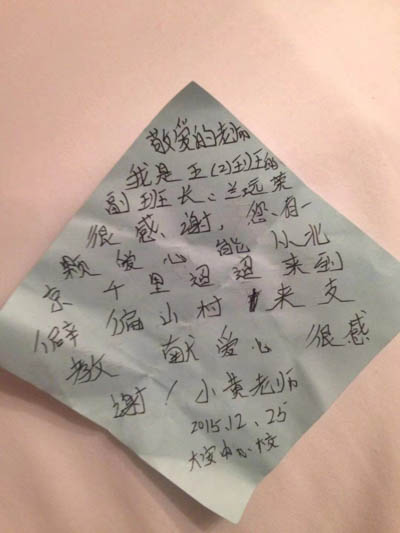 敬爱的老师
我是王(2)班的
副班长:兰玩荣
很感谢,您有一
颗爱心能从北
京千里迢迢来到
僻偏山村来支
教献爱心很感
谢!小黄老师
2015.12.25
大安中心校